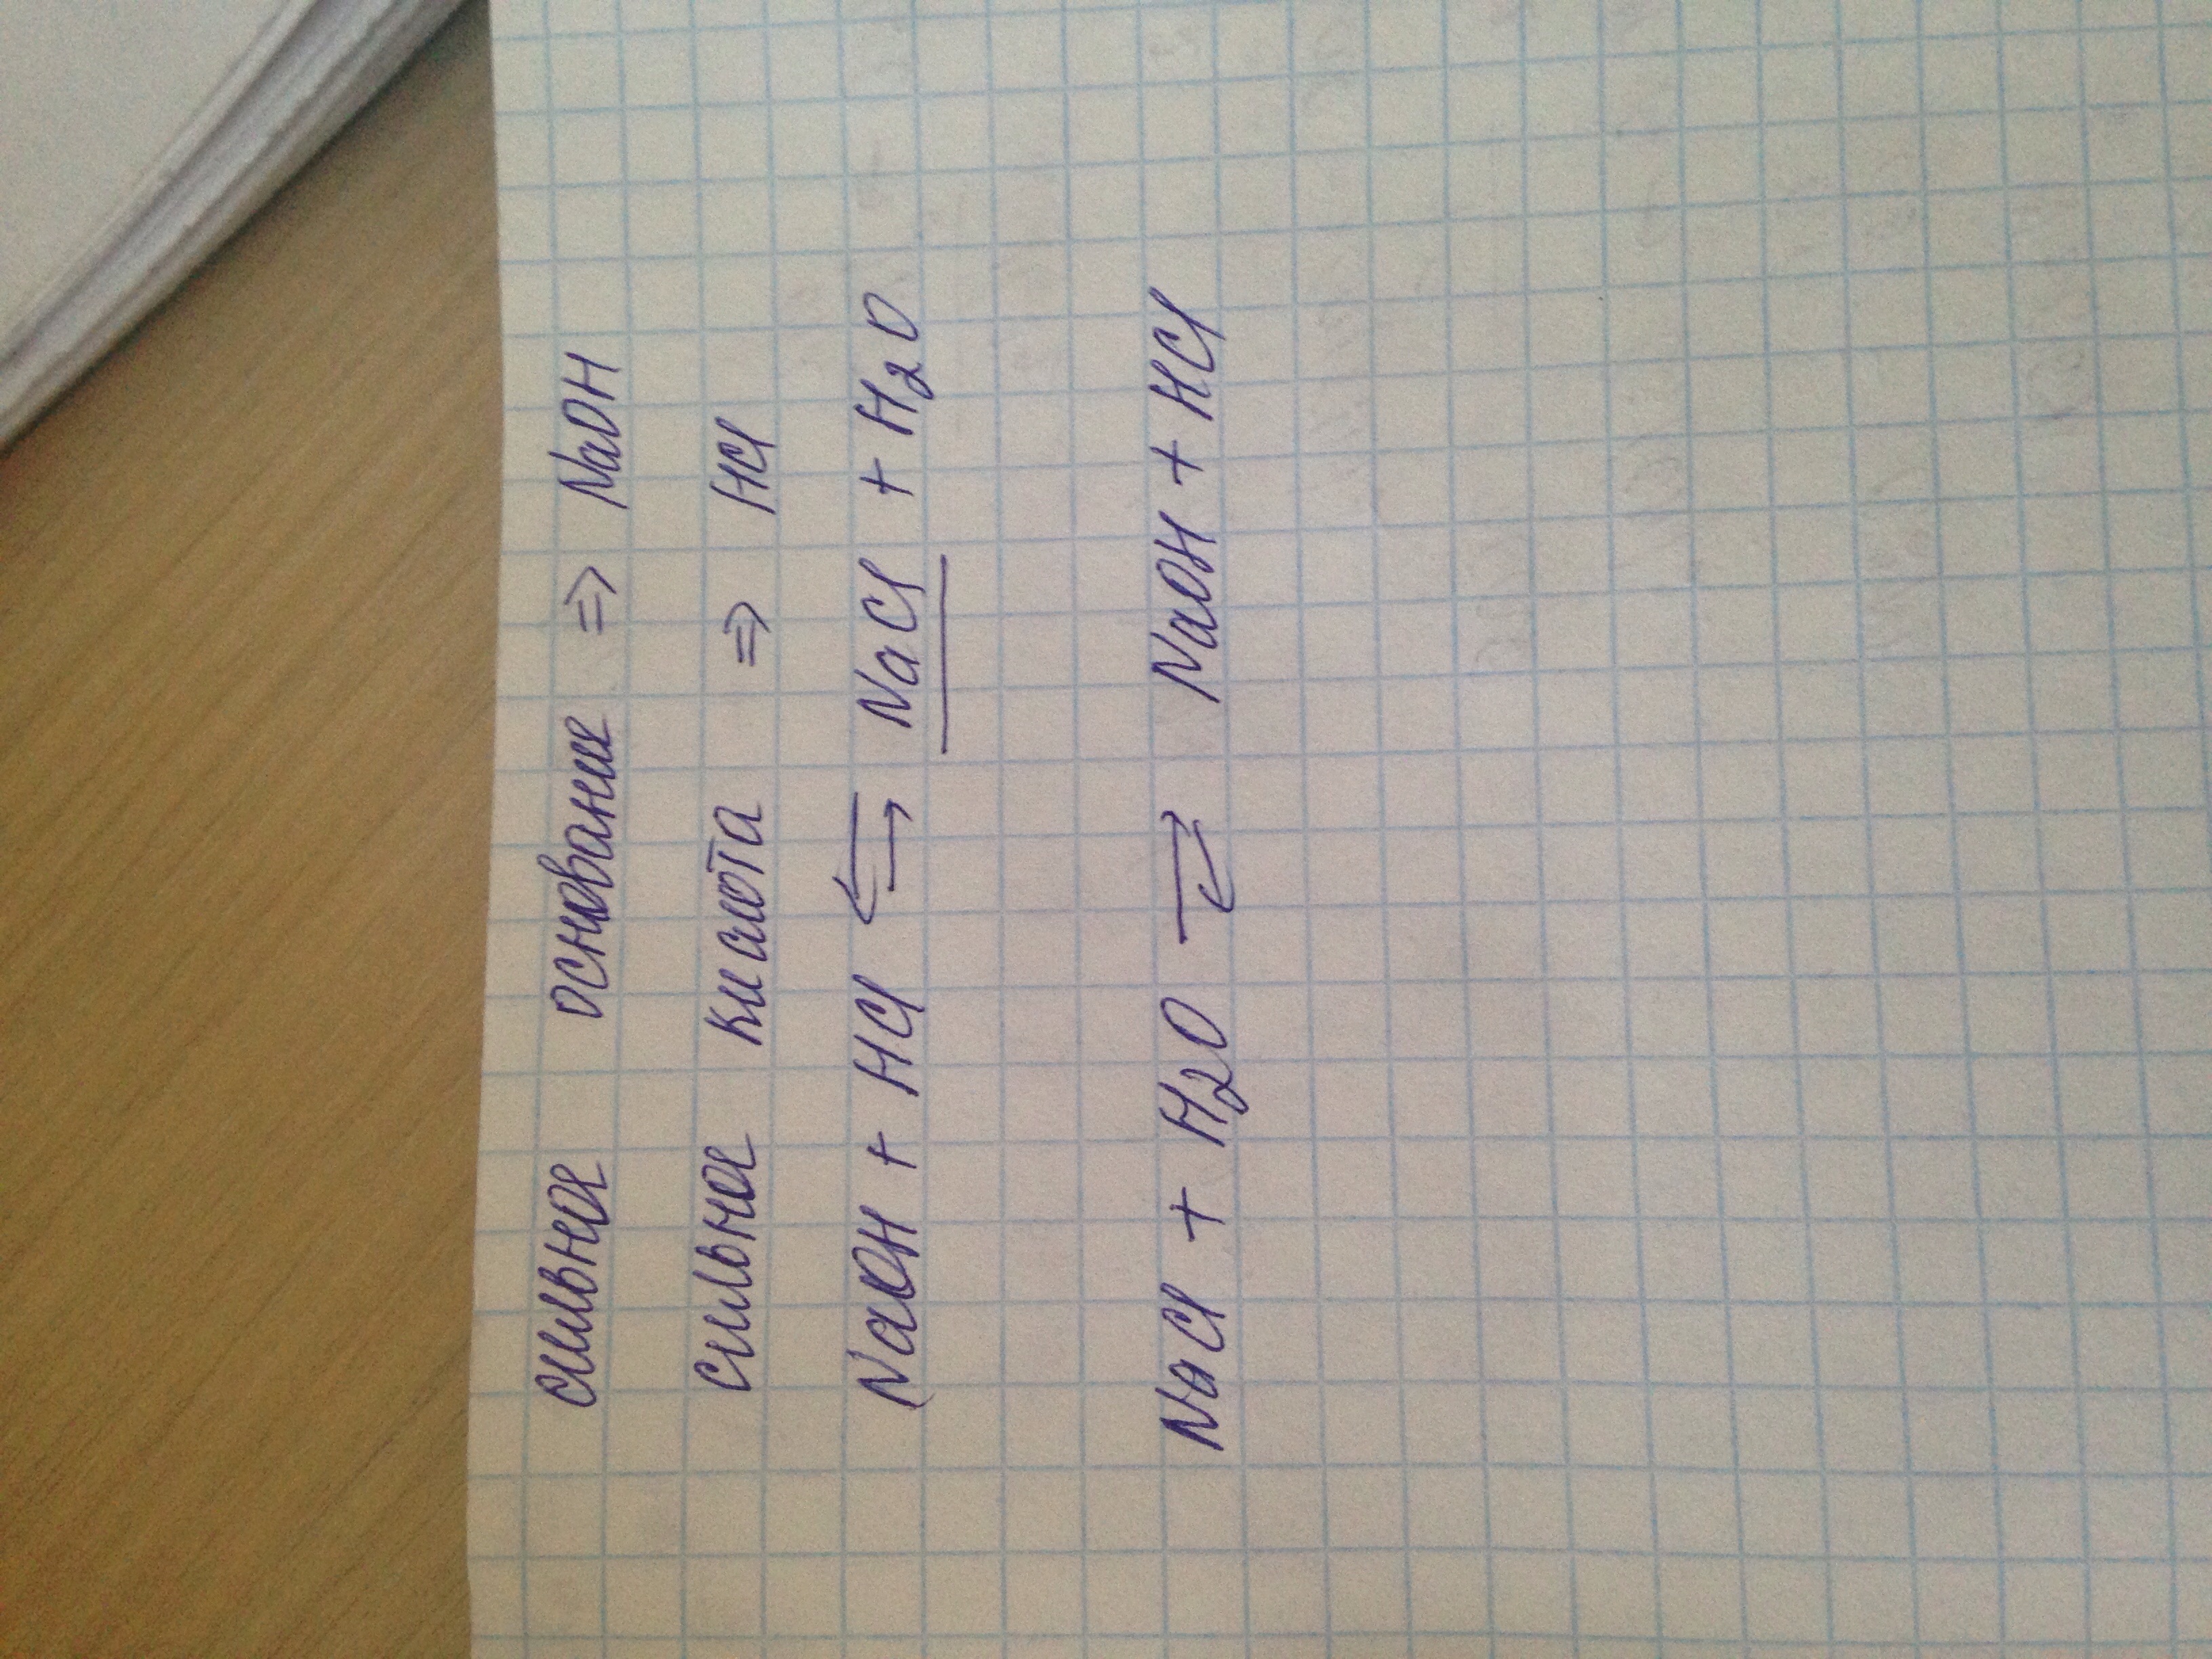 сильное основание => NaOH
сильное кислота => HCl
NaOH + HCl ⇆ NaCl + H₂O
NaCl + H₂O ⇄ NaOH + HCl